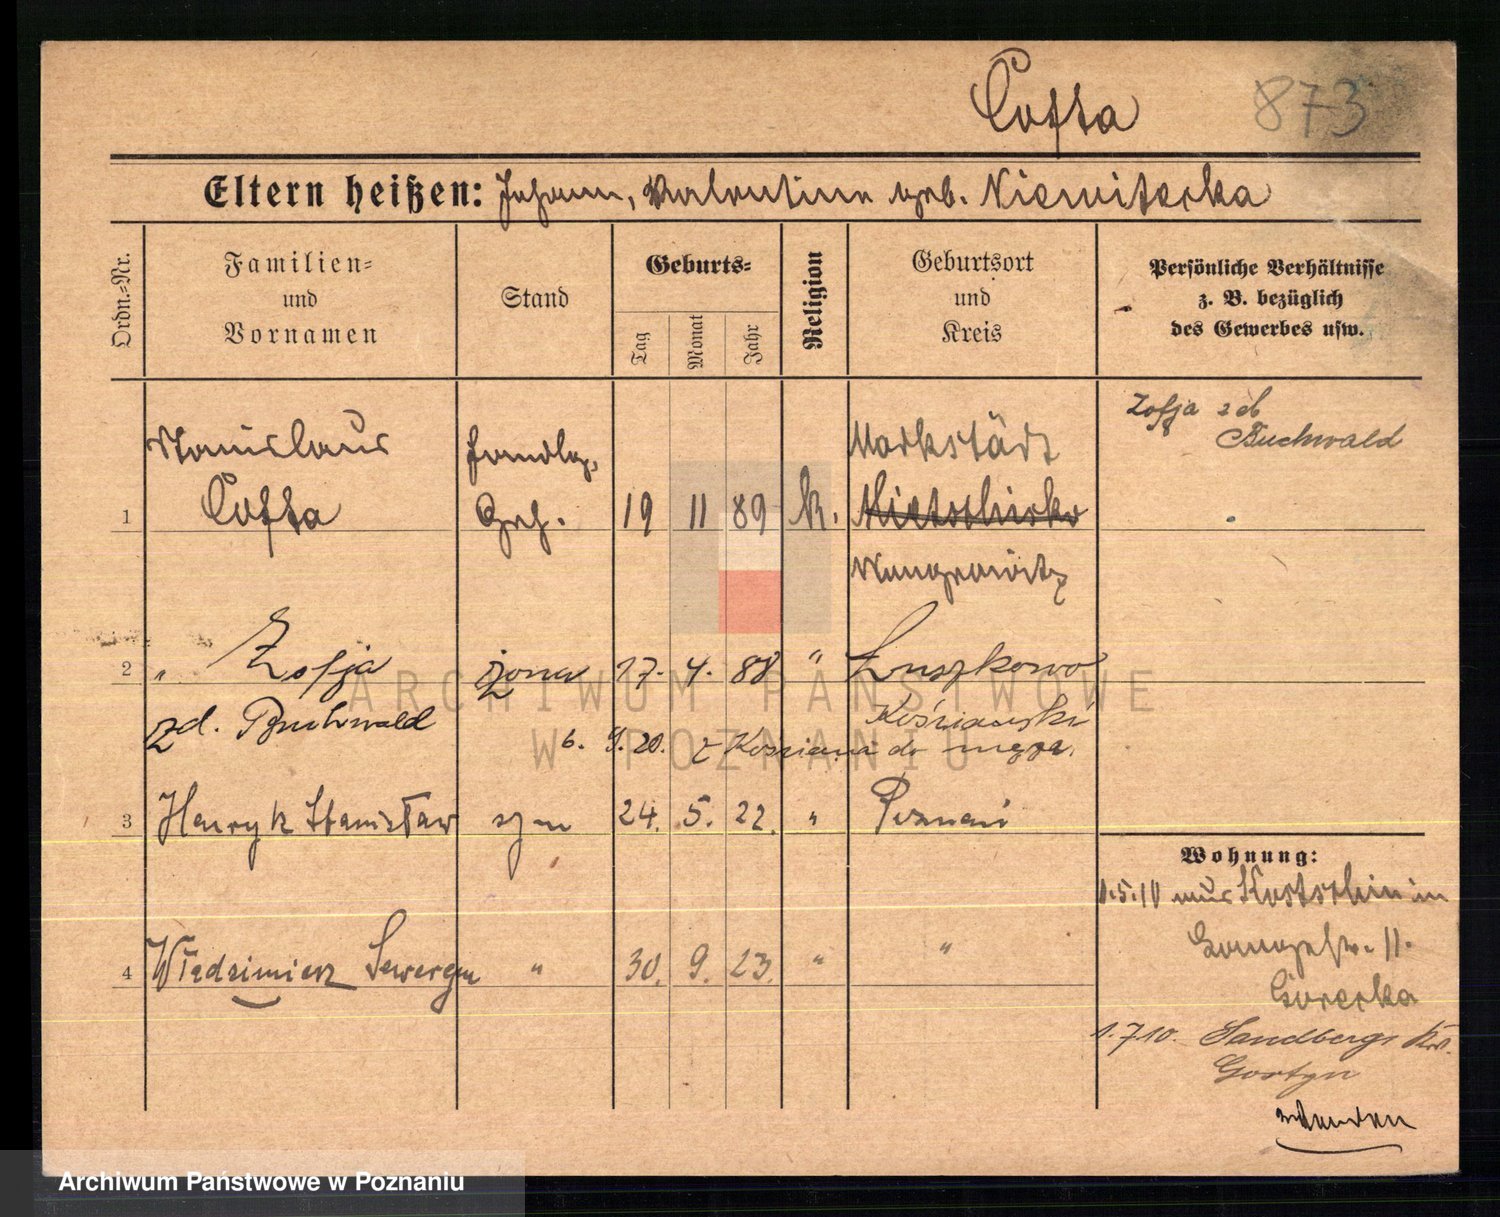 Cofta 873
Eltern heißen: Johann, Valentine geb. Niewiterka
Ordn.-Nr.
Familien-
und
Vornamen
Stand
Geburts-
Tag
Monat
Jahr
Religion
Geburtsort
und
Kreis
Persönliche Verhältnisse
z. B. bezüglich
des Gewerbes usw.
Zofja zd
Buchwald
Stanislaus
Handlgs.
Markstädt
1 Cofta Geh. 19 11 89 k. Mietschisko
Wongrowitz
2 " Zofja żona 17. 4. 88 " Łuszkowo
zd. Buchwald
Kościański
6. 9. 20. z Kościana do męża.
3 Henryk Stanisław syn 24. 5. 22. " Poznań
Wohnung:
1.5.10 aus Kostschin in
4 Włodzimierz Seweryn " 30. 9. 23. " "
11.
Gorerka
1.7.10. Sandberg Kr.
Gostyn
wenden
ARCHIWUM PAŃSTWOWE
W POZNANIU
Archiwum Państwowe w Poznaniu